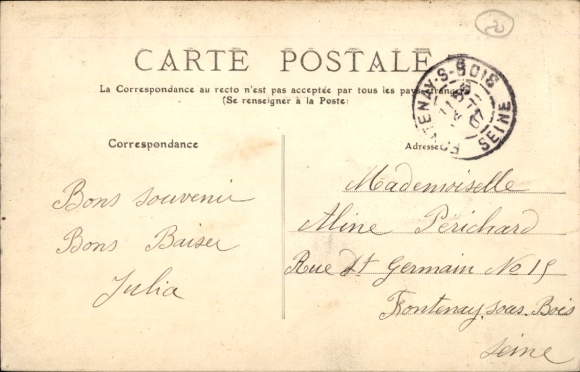 CARTE POSTALE
La Correspondance au recto n'est pas acceptée par tous les pays étrangers
(Se renseigner à la Poste)
FONTENAY-S-BOIS
SEINE
Correspondance
Adresse
Bons souvenir
Bons Baiser
Julia
Mademoiselle
Aline Perichard
Rue St Germain No 15
Fontenay sous Bois
Seine